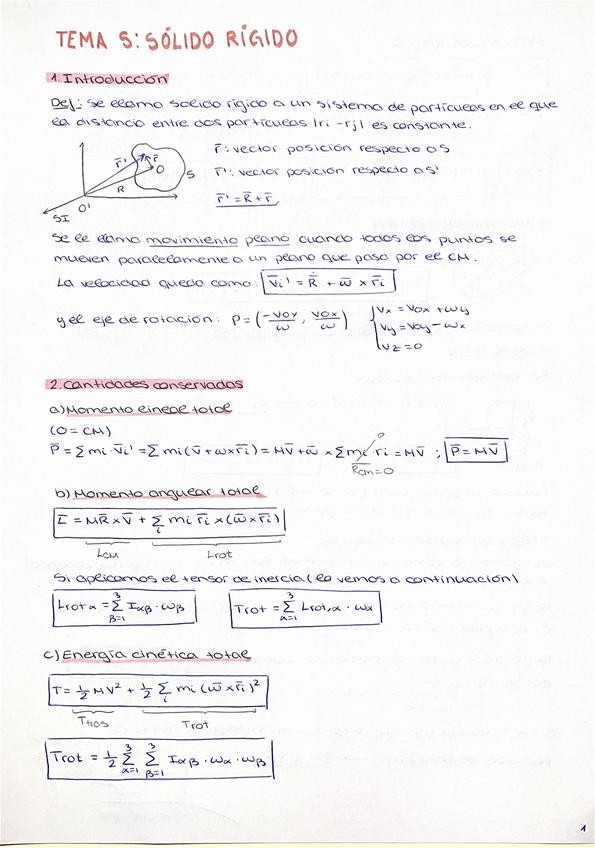 TEMA 5: SÓLIDO RÍGIDO
1. Introducción
Def.: Se llama sólido rígido a un sistema de partículas en el que
la distancia entre dos partículas |ri - rj| es constante.
r̄': r̄ O S R O' SI
r̄: vector posición respecto a S
r̄': vector posición respecto a S'
r̄' = R̄ + r̄
Se le llama movimiento plano cuando todos los puntos se
mueven paralelamente a un plano que pasa por el CM.
La velocidad queda como: v̄i' = Ṙ̄ + ω̄ × r̄i
y el eje de rotación: P = (-Voy/ω, Vox/ω) { Vx = Vox + ωy
Vy = Voy - ωx
Vz = 0
2. Cantidades conservadas
a) Momento lineal total
(O = CM)
P̄ = Σ mi · v̄i' = Σ mi (v̄ + ω × r̄i) = MV̄ + ω̄ × Σ mi r̄i = MV̄ ; P̄ = MV̄
0
R̄cm = 0
b) Momento angular total
L̄ = MR̄ × V̄ + Σi mi r̄i × (ω̄ × r̄i)
LCM Lrot
Si aplicamos el tensor de inercia (lo vemos a continuación)
Lrot α = Σ(β=1→3) Iαβ · ωβ Trot = Σ(α=1→3) Lrot,α · ωα
c) Energía cinética total
T = 1/2 MV² + 1/2 Σi mi (ω̄ × r̄i)²
Ttras Trot
Trot = 1/2 Σ(α=1→3) Σ(β=1→3) Iαβ · ωα · ωβ
1